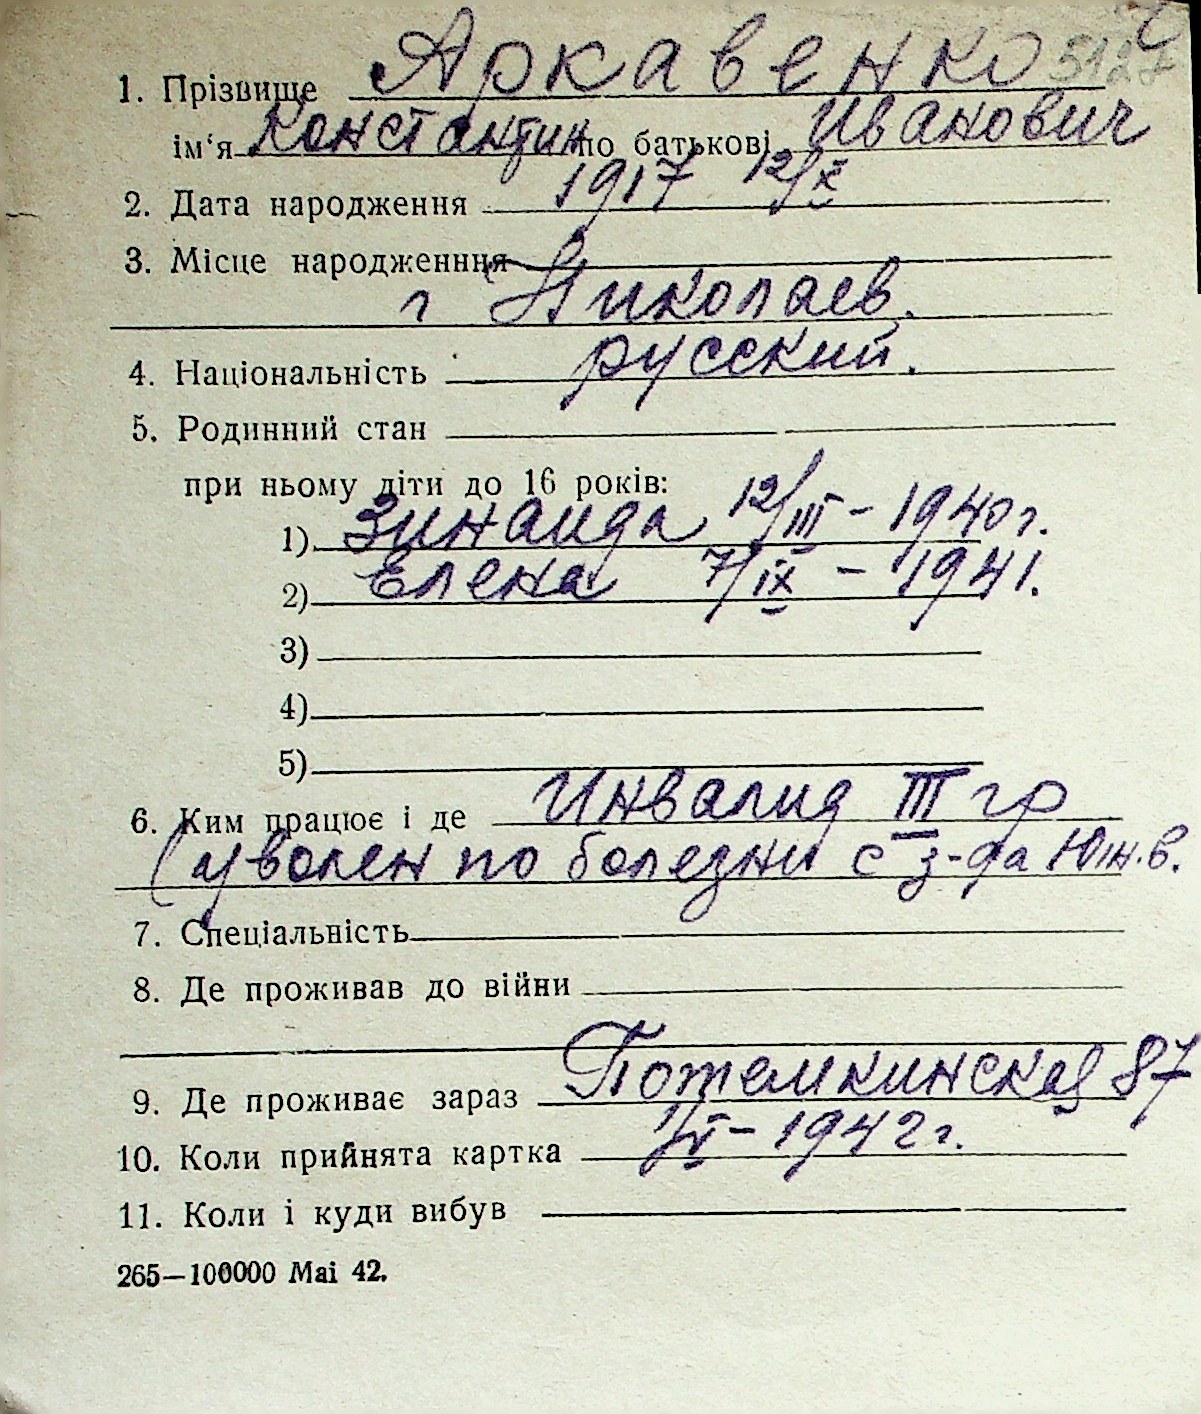 1. Прізвище Аркавенко 5127
ім'я Константин по батькові Иванович
2. Дата народження 1917 12/X
3. Місце народженння
г Николаев.
4. Національність русский.
5. Родинний стан
при ньому діти до 16 років:
1) Зинаида 12/III - 1940 г.
2) Елена 7/IX - 1941.
3)
4)
5)
6. Ким працює і де Инвалид III гр
(уволен по болезни с з-да Южн.в.
7. Спеціальність
8. Де проживав до війни
9. Де проживає зараз Потемкинская 87
10. Коли прийнята картка 1/V - 1942 г.
11. Коли і куди вибув
265—100000 Mai 42.